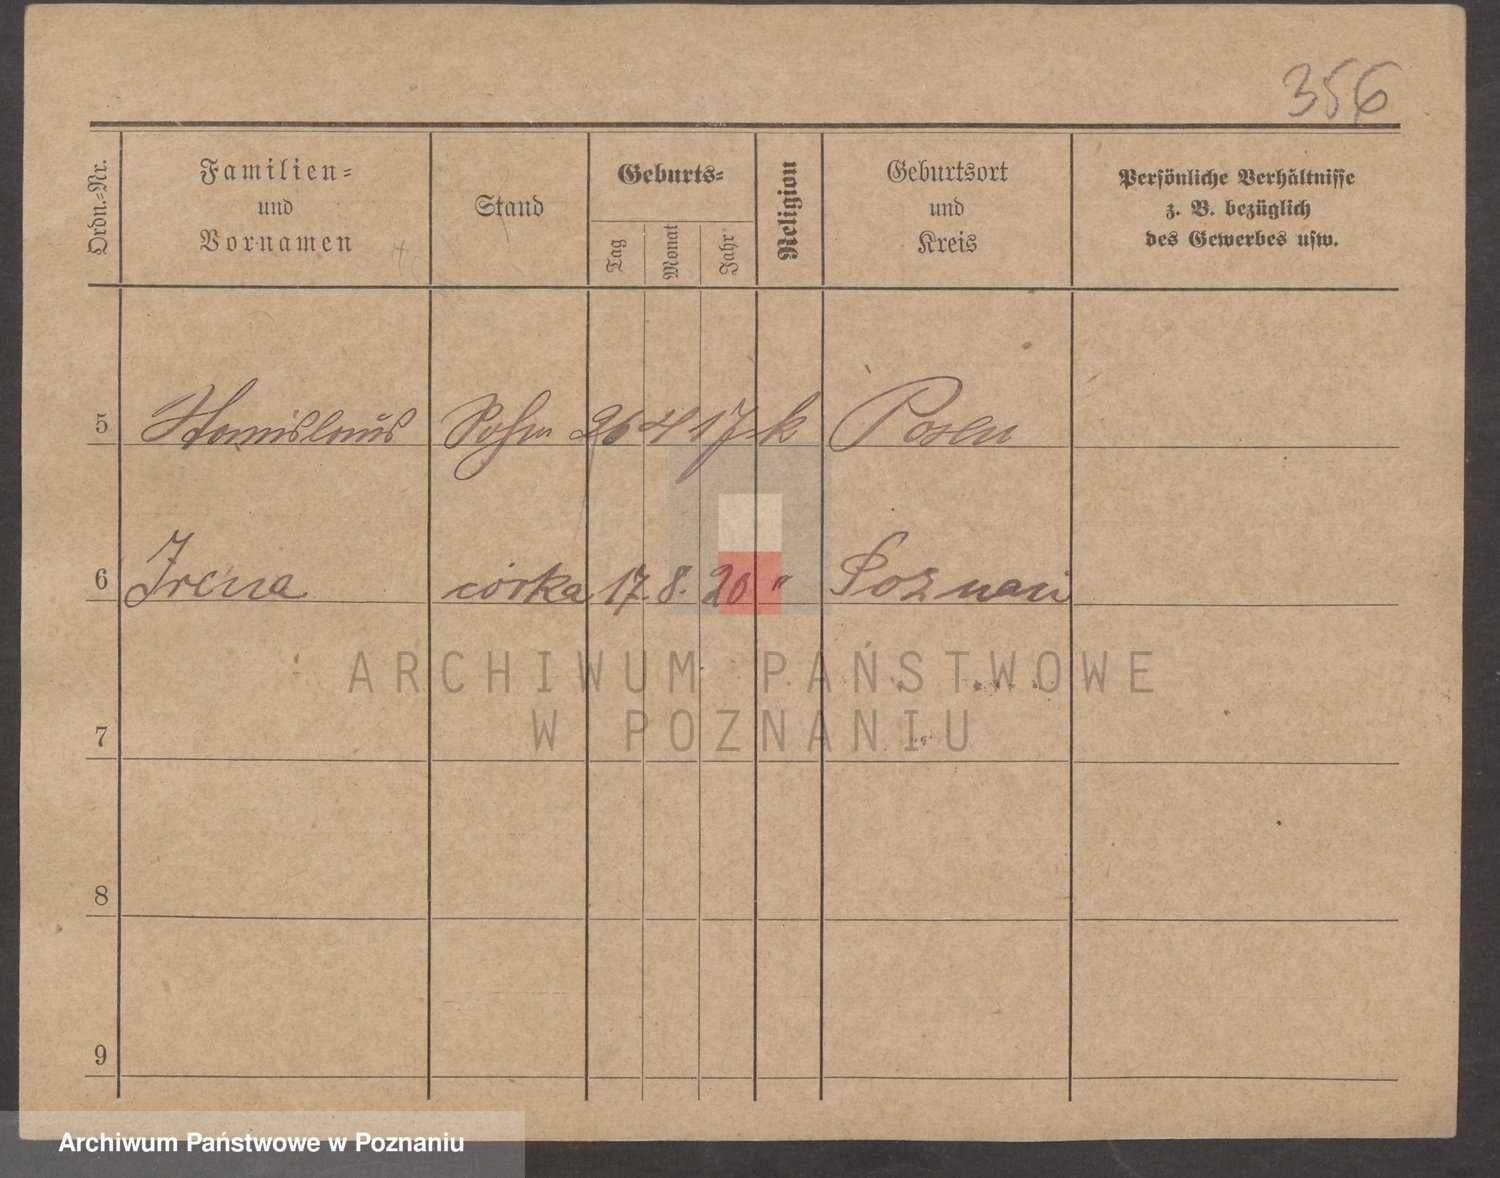 356
Ordn.-Nr.
Familien-
und
Vornamen
Stand
Geburts-
Tag
Monat
Jahr
Religion
Geburtsort
und
Kreis
Persönliche Verhältnisse
z. B. bezüglich
des Gewerbes usw.
5 Stanislaus Sohn 26 4 17 k Posen
6 Irena córka 17. 8. 20 " Poznań
ARCHIWUM PAŃSTWOWE
W POZNANIU
7
8
9
Archiwum Państwowe w Poznaniu